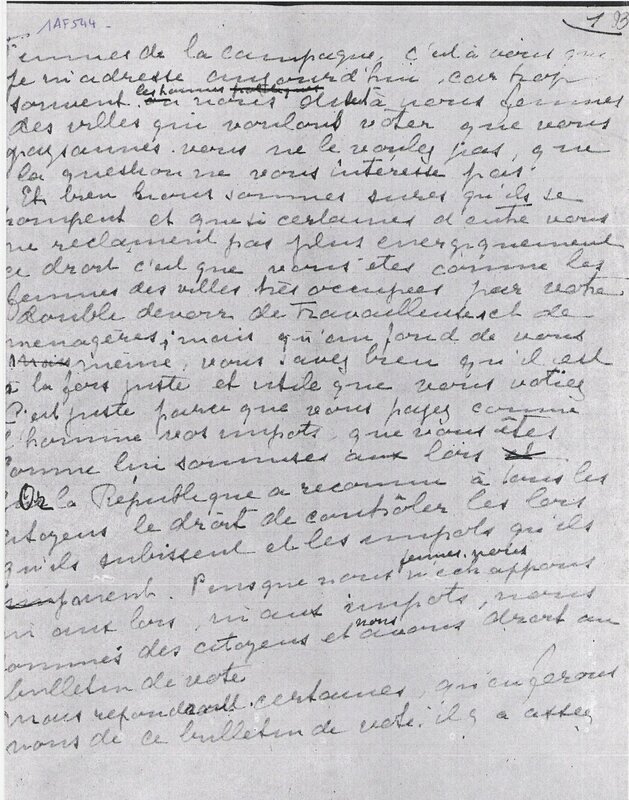 1AF544
1 93
Femmes de la campagne, c'est à vous que
je m'adresse aujourd'hui, car trop
souvent les hommes politiques
nous disent à nous femmes
des villes qui voulons voter que vous
paysannes vous ne le voulez pas, que
la question ne vous interesse pas.
Et bien nous sommes sures qu'ils se
trompent et que si certaines d'entre vous
ne reclament pas plus energiquement
ce droit c'est que vous êtes comme les
femmes des villes très occupées par votre
double devoir de travailleuse et de
menagères, mais qu'au fond de vous
même, vous savez bien qu'il est
à la fois juste et utile que vous votiez
C'est juste parce que vous payez comme
l'homme vos impots, que vous êtes
comme lui soumises aux lois et
Or la République a reconnu à tous les
citoyens le droit de contrôler les lois
qu'ils subissent et les impots qu'ils
payent. Puisque nous femmes, nous n'echappons
ni aux lois, ni aux impots, nous
sommes des citoyens et nous avons droit au
bulletin de vote
nous repondront certaines, qu'en ferons
nous de ce bulletin de vote. il y a assez